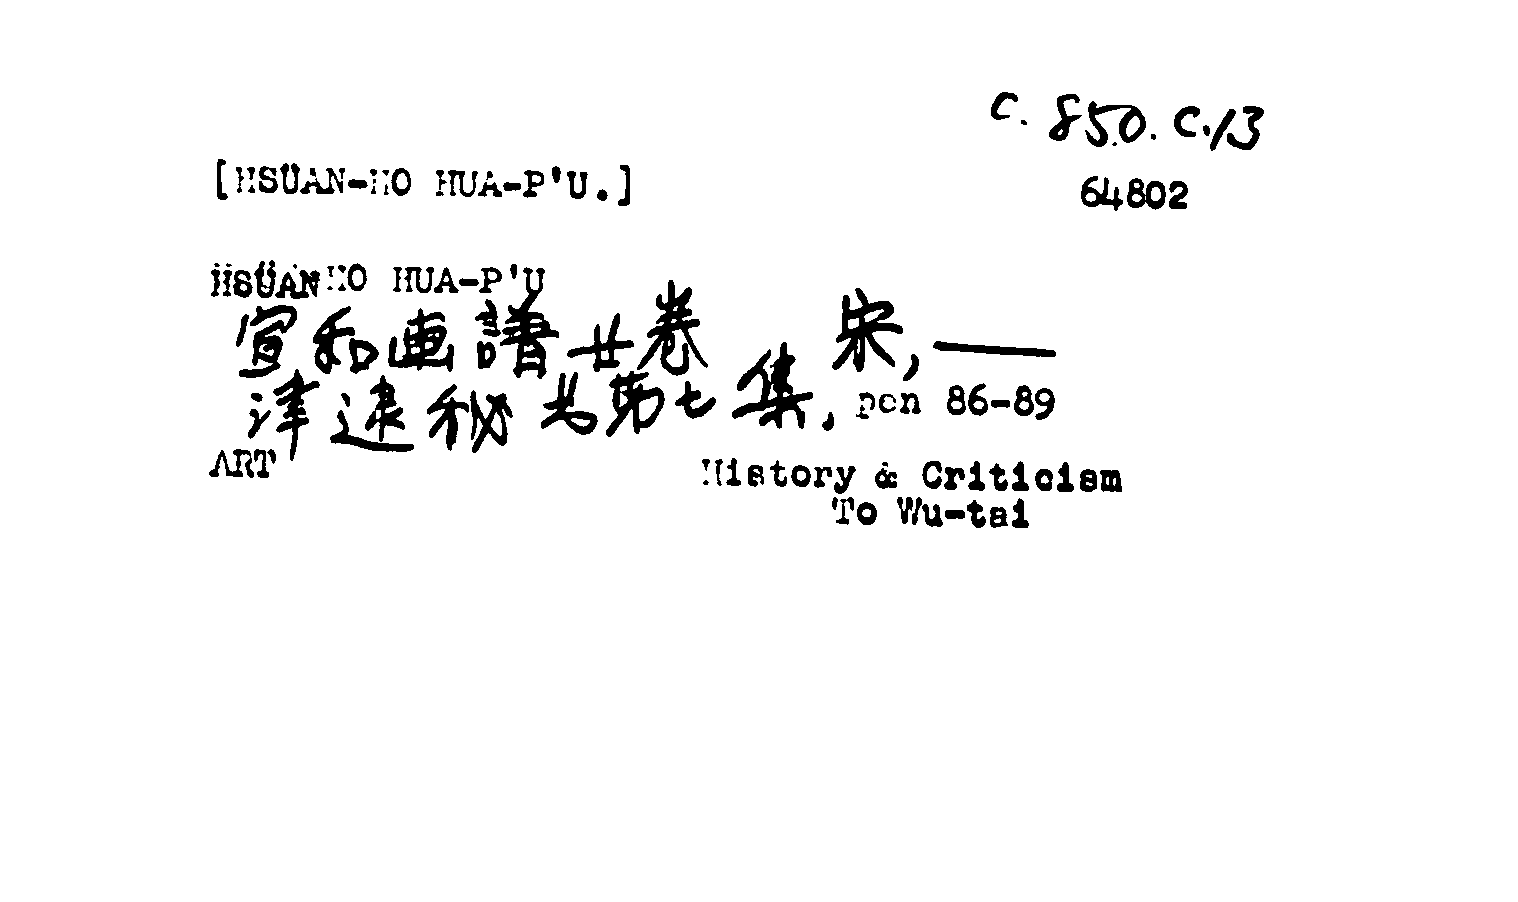 C. 850. C./3
[HSÜAN-HO HUA-P'U.]
64802
HSÜAN HO HUA-P'U
宣和画譜廿卷 宋, ——
津逮秘书第七集, pen 86-89
ART
History & Criticism
To Wu-tai